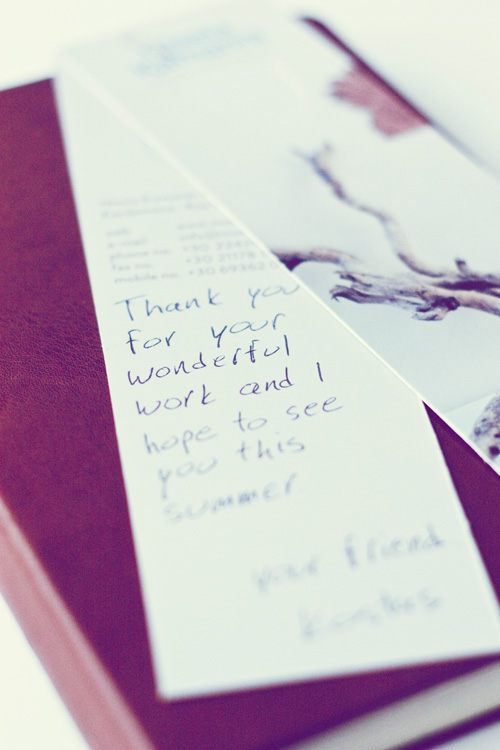 e-mail
phone no. +30 2242
fax no. +30 21178
mobile no. +30 69362 0
Thank you
for your
wonderful
work and I
hope to see
you this
summer.
your friend
Kostas